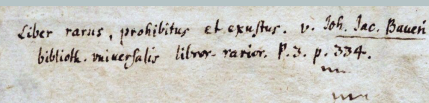 Liber rarus, prohibitus et exustus. v. Joh. Jac. Baueri
biblioth. universalis libror. rarior. P. 3. p. 334.